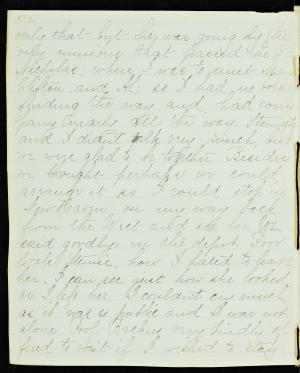 only that - but he was going by the
very omnibus that passed the St
Nicholas, where I was to meet Mr
Clifton and Al; so I had no bother
finding the way and had com
pany nearly all the way. Stennie
and I didn't talk very much, but
we were glad to be together. Besides
we thought perhaps we could
arrange it so I could stop in
New Haven on my way back
from the West and see her. We
said goodbye in the depot. Poor
little Stennie, how I hated to leave
her. I can see just how she looked
as I left her. I couldn't cry much,
as it was so public and I was not
alone. Prof. Backus very kindly of
fered to wait if I wished to stay